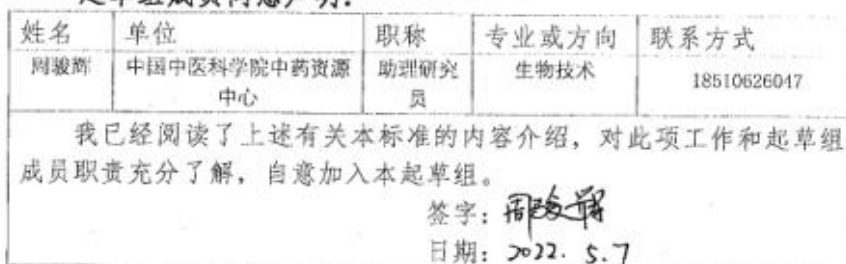 起草组成员同意声明:
姓名 单位 职称 专业或方向 联系方式
周骏辉 中国中医科学院中药资源中心 助理研究员 生物技术 18510626047
我已经阅读了上述有关本标准的内容介绍，对此项工作和起草组
成员职责充分了解，自意加入本起草组。
签字：周骏辉
日期：2022.5.7